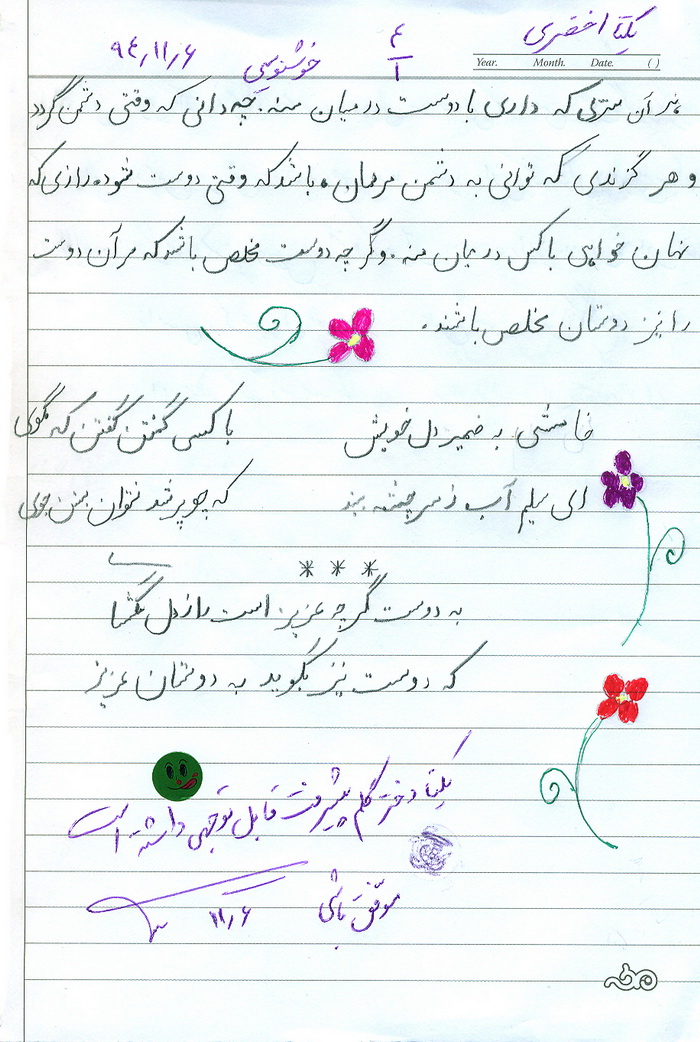 یکتا اخضری
۴
۱
خوشنویسی
۹۴/۱۱/۶
Year. Month. Date. ( )
هر آن سرّی که داری با دوست در میان منه. چه دانی که وقتی دشمن گردد
و هر گزندی که توانی به دشمن مرسان، باشد که وقتی دوست شود. رازی که
نهان خواهی با کس در میان منه. وگر چه دوست مخلص باشد که مر آن دوست
را نیز دوستان مخلص باشند.
خامشی به ضمیر دل خویش با کسی گفتن گفتن که مگوی
ای سلیم آب ز سرچشمه ببند که چو پر شد نتوان بستن جوی
***
به دوست گرچه عزیز است راز دل مگشا
که دوست نیز بگوید به دوستان عزیز
یکتا دختر گلم پیشرفت قابل توجهی داشته است
موفق باشی
۱۱/۶